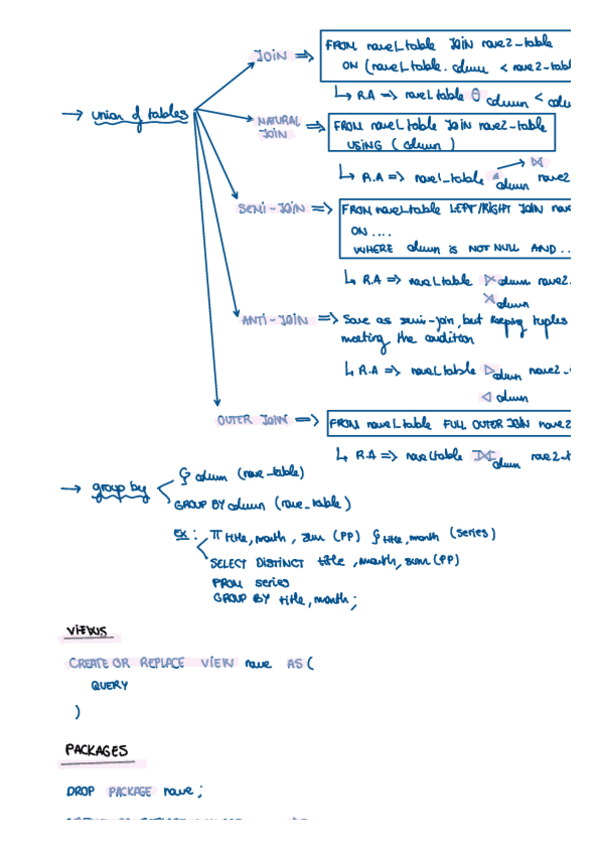 JOIN => FROM name1_table JOIN name2_table
ON (name1_table. column < name2-tabl
↳ R.A => name1_table θ column < colu
→ union of tables
NATURAL JOIN => FROM name1_table JOIN name2-table
USING ( column )
↳ R.A => name1_table column name2
⋈
SEMI-JOIN => FROM name1_table LEFT/RIGHT JOIN name
ON ....
WHERE column IS NOT NULL AND ..
↳ R.A => name1_table ⋉ column name2.
⋊ column
ANTI-JOIN => Same as semi-join, but keeping tuples
meeting the condition
↳ R.A => name1_table ▷ column name2-
◁ column
OUTER JOIN => FROM name1_table FULL OUTER JOIN name2
↳ R.A => name1_table ⟗ column name2-t
→ group by
column (name_table)
GROUP BY column (name_table)
EX: π title, month, sum (PP) title, month (series)
SELECT DISTINCT title, month, sum (PP)
FROM series
GROUP BY title, month;
VIEWS
CREATE OR REPLACE VIEW name AS (
QUERY
)
PACKAGES
DROP PACKAGE name;